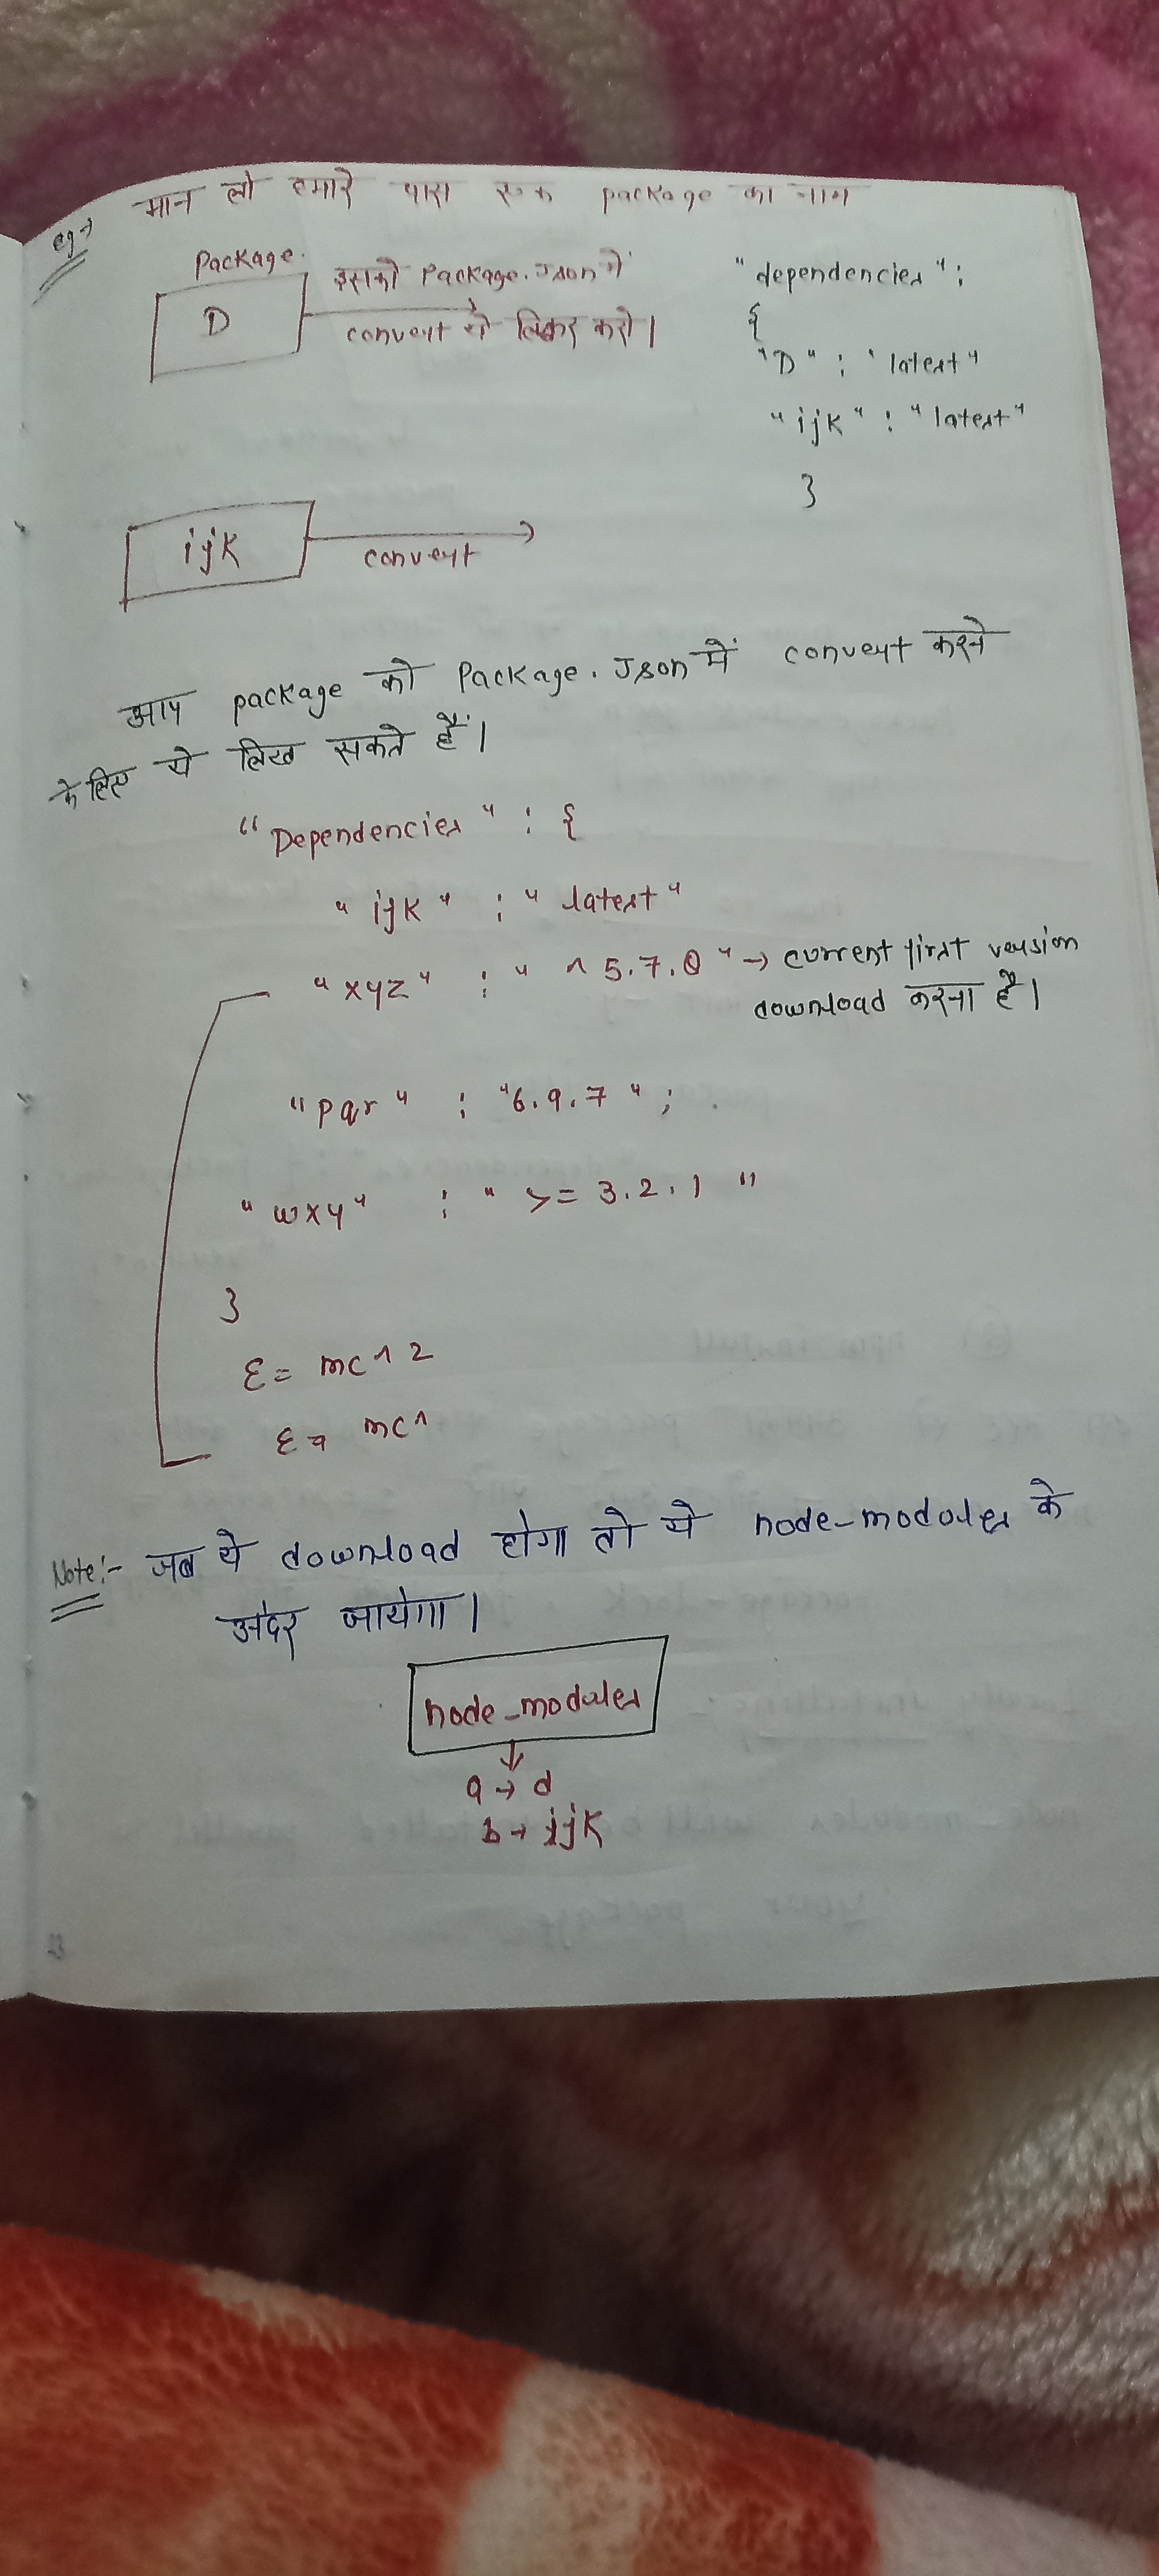 eg→ मान लो हमारे पास एक package का नाम
Package.
D
इसको Package.Json में
convert लिखर करो।
"dependencies";
{
"D" : "latest"
"ijk" : "latest"
}
ijk
convert
आप package को Package.Json में convert करने
के लिए ये लिख सकते हैं।
"Dependencies" : {
"ijk" : "latest"
"xyz" : "^5.7.0" → current first version
download करना है।
"pqr" : "6.9.7";
"wxy" : ">= 3.2.1"
}
E = mc^2
E = mc^
Note:- जब ये download होगा तो ये node-modules के
अंदर जायेगा।
node_modules
a → d
b → ijk